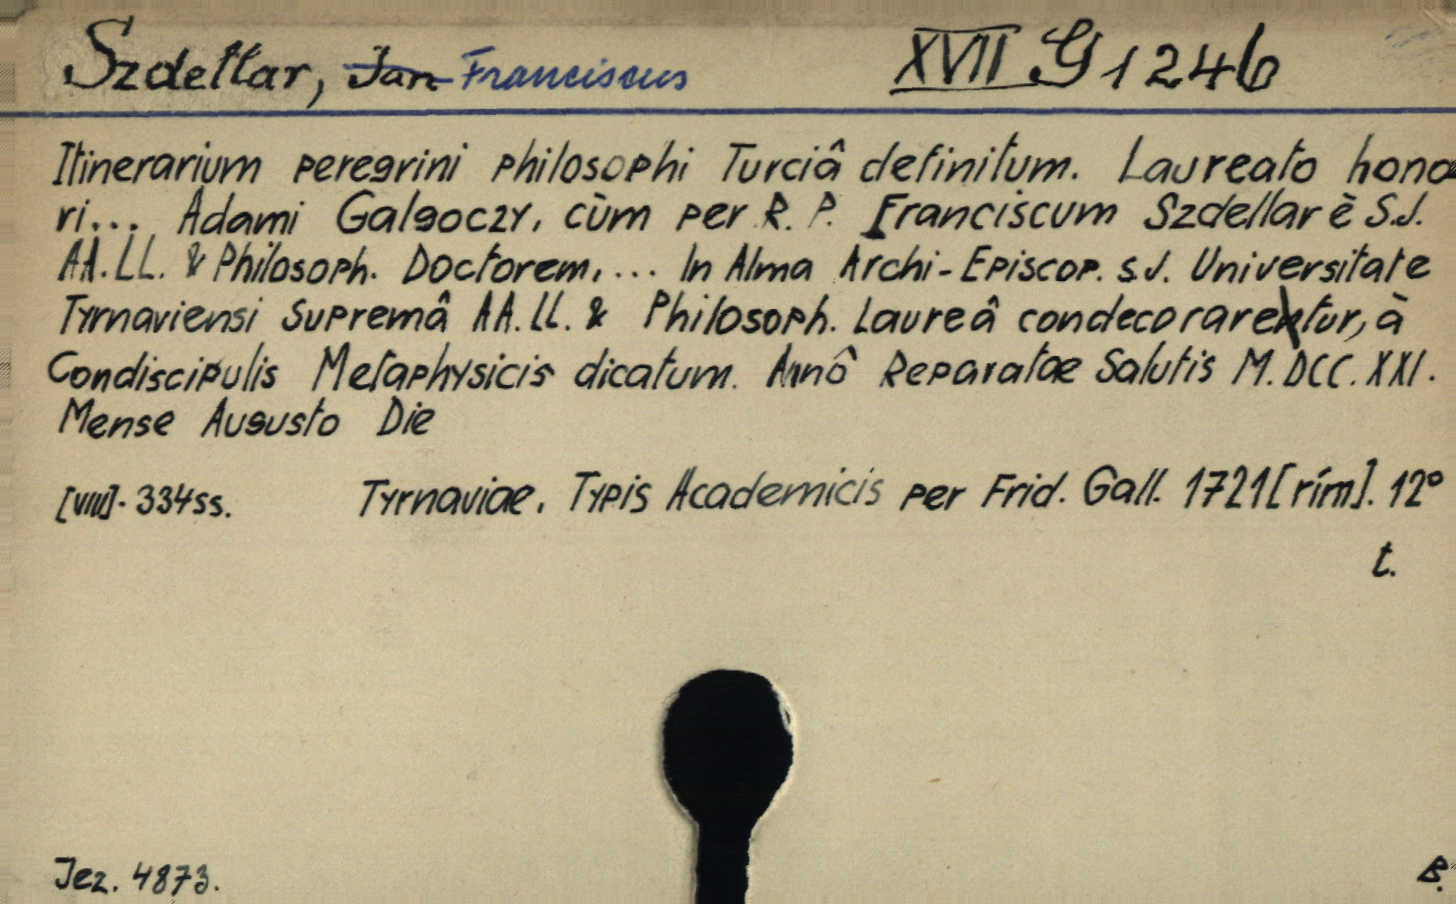 Szdellar, Jan Franciscus XVII G 1246
Itinerarium peregrini philosophi Turciâ definitum. Laureato hono
ri... Adami Galgoczy, cùm per R. P. Franciscum Szdellar è S.J.
AA.LL. & Philosoph. Doctorem,... In Alma Archi-Episcop. S.J. Universitate
Tyrnaviensi Supremâ AA.LL. & Philosoph. Laureâ condecoraretur, à
Condiscipulis Metaphysicis dicatum. Annô Reparatae Salutis M.DCC.XXI.
Mense Augusto Die
[VIII]-334ss. Tyrnaviae, Typis Academicis per Frid. Gall. 1721[rím]. 12°
t.
Jez. 4873. B.